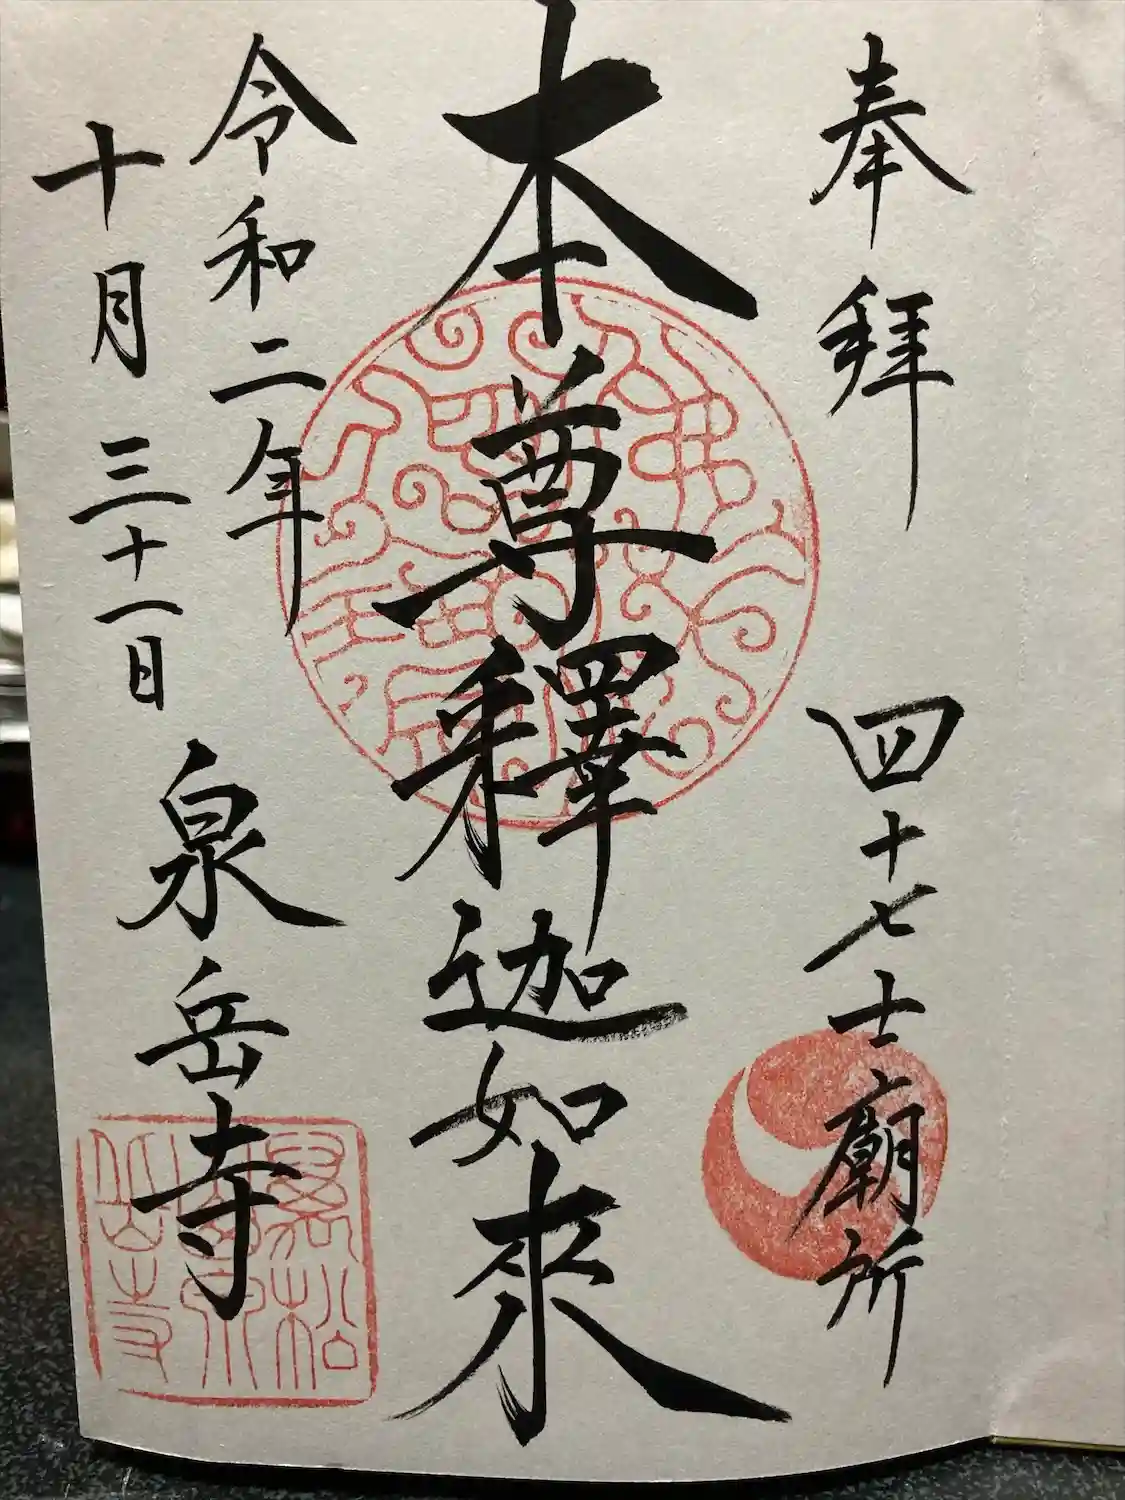 奉拝 四十七士廟所
本尊釋迦如來
令和二年
十月三十一日
泉岳寺